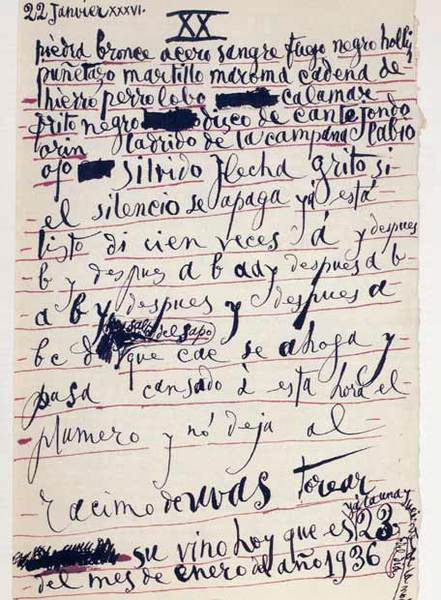 22 Janvier XXXVI.
XX
piedra bronce acero sangre fuego negro hollin
puñetazo martillo maroma cadena de
hierro perro lobo calamar
grito negro disco de cante jondo
orin ladrido de la campana labio
ojo silvido flecha grito si
el silencio se apaga ya está
listo di cien veces á y despues
b y despues a b a d y despues a b
a b y despues y despues a
salto del sapo
b c d que cae se ahoga y
pasa cansado à esta hora el
plumero y nó deja al
racimo de uvas torear
su vino hoy que es 23
del mes de enero del año 1936